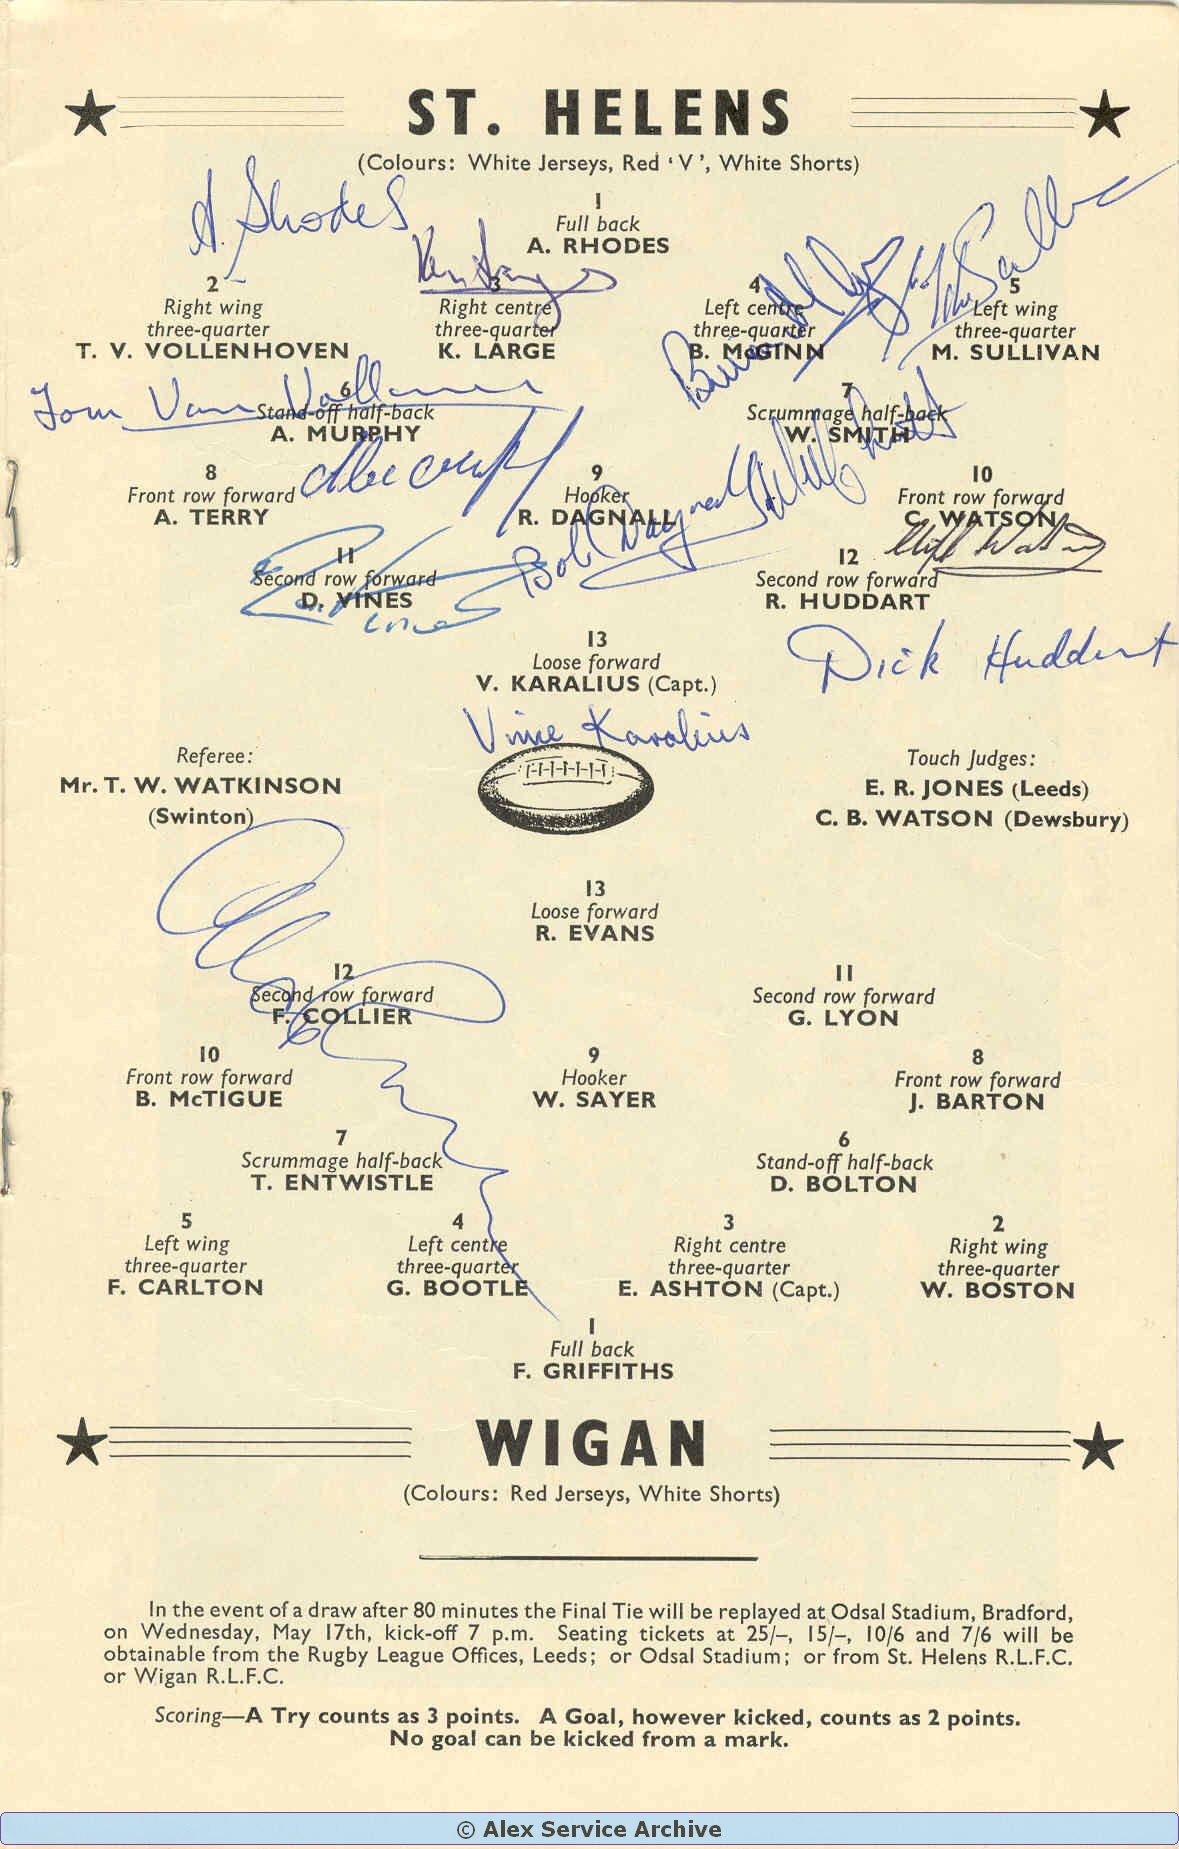 ST. HELENS
(Colours: White Jerseys, Red 'V', White Shorts)
A. Rhodes
1
Full back
A. RHODES
2
Right wing
three-quarter
T. V. VOLLENHOVEN
Ken Large
3
Right centre
three-quarter
K. LARGE
4
Left centre
three-quarter
B. McGINN
Brian McGinn
5
Left wing
three-quarter
M. SULLIVAN
Mick Sullivan
Tom Van Vollenhoven
6
Stand-off half-back
A. MURPHY
Alec Murphy
7
Scrummage half-back
W. SMITH
8
Front row forward
A. TERRY
9
Hooker
R. DAGNALL
Bob Dagnall
10
Front row forward
C. WATSON
Cliff Watson
11
Second row forward
D. VINES
12
Second row forward
R. HUDDART
Dick Huddart
13
Loose forward
V. KARALIUS (Capt.)
Vince Karalius
Referee:
Mr. T. W. WATKINSON
(Swinton)
Touch Judges:
E. R. JONES (Leeds)
C. B. WATSON (Dewsbury)
13
Loose forward
R. EVANS
12
Second row forward
F. COLLIER
11
Second row forward
G. LYON
10
Front row forward
B. McTIGUE
9
Hooker
W. SAYER
8
Front row forward
J. BARTON
7
Scrummage half-back
T. ENTWISTLE
6
Stand-off half-back
D. BOLTON
5
Left wing
three-quarter
F. CARLTON
4
Left centre
three-quarter
G. BOOTLE
3
Right centre
three-quarter
E. ASHTON (Capt.)
2
Right wing
three-quarter
W. BOSTON
1
Full back
F. GRIFFITHS
WIGAN
(Colours: Red Jerseys, White Shorts)
In the event of a draw after 80 minutes the Final Tie will be replayed at Odsal Stadium, Bradford,
on Wednesday, May 17th, kick-off 7 p.m. Seating tickets at 25/–, 15/–, 10/6 and 7/6 will be
obtainable from the Rugby League Offices, Leeds; or Odsal Stadium; or from St. Helens R.L.F.C.
or Wigan R.L.F.C.
Scoring—A Try counts as 3 points. A Goal, however kicked, counts as 2 points.
No goal can be kicked from a mark.
© Alex Service Archive